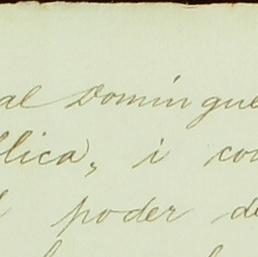 al Domingue
blica, i con
l poder de